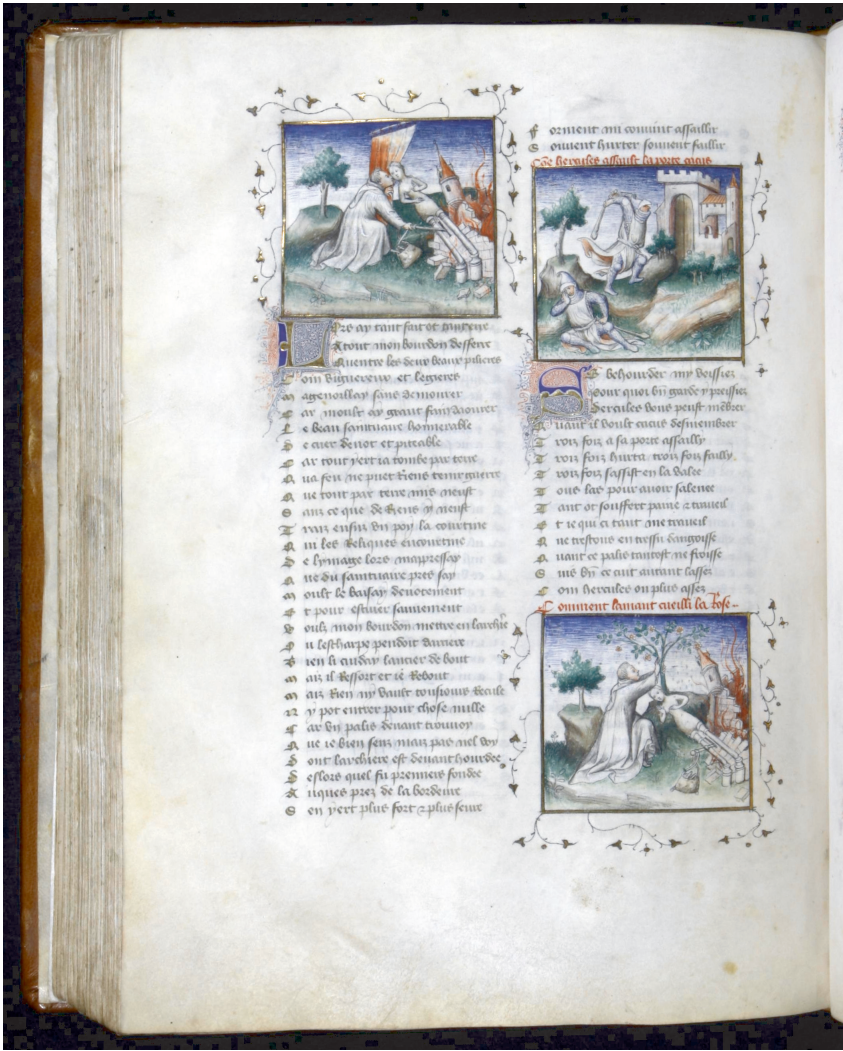 Tant ay tant fait et tant erre
A tout mon bourdon defferre
Quentre les deux beaux pilieres
Com viguereux et legieres
magenoillay sans demourer
Car moult ay grant fain daourer
Le beau saintuaire honnorable
De cuer devot et piteable
Car tout yert ia tombe par terre
Qua feu ne puet Riens tenir guerre
Que tout par terre mis neust
Sanz ce que de Riens y neust
Trais ensus un poy la courtine
Qui les Reliques encourtine
De lymage lors mapressay
Que du saintuaire pres say
moult le baisay devotement
Et pour estuier sauvement
voulz mon bourdon mettre en larchiere
Ou lescharpe pendoit darriere
Bien li cuiday lancier de bout
maiz il Ressort et ie Rebout
maiz Rien ny vault tousiours Recule
Ny pot entrer pour chose nulle
Car un palis devant trouvoy
Que ie bien senz maiz pas nel voy
Dont larchiere est devant hourdee
Deslors quel fu premiers fondee
Auques prez de la bordeure
Sen yert plus fort & plus seure
Forment mi convint assaillir
Souvent hurter souvent faillir
Coment hercules assault la porte cacus
Se behourder my veissiez
Pour quoi bien garde y preissiez
Hercules vous peust membrer
Quant il voult cacus desmembrer
Troiz foiz a sa porte assailly
Troiz foiz hurta troiz foiz failly
Troiz foiz sassist en la valee
Tout las pour avoir salenee
Tant ot souffert paine & travail
Et ie qui ci tant me travail
Que trestous en tressu dangoisse
Quant ce palis tantost ne froisse
Suis bien ce cuit autant lassez
Com hercules ou plus assez
Comment lamant cueilli la Rose